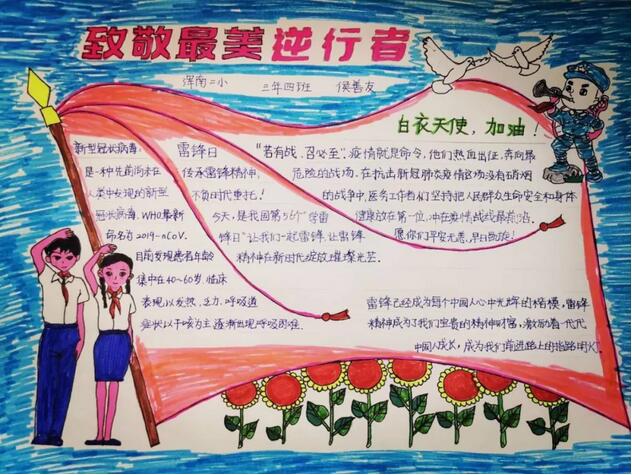 致敬最美逆行者
浑南二小 三年四班 侯善友
白衣天使，加油！
新型冠状病毒，
是一种先前尚未在
人类中发现的新型
冠状病毒，WHO最新
命名为2019-nCoV.
目前发现患者年龄
集中在40～60岁，临床
表现以发热、乏力、呼吸道
症状以干咳为主逐渐出现呼吸困难.
雷锋日
传承雷锋精神，
不负时代重托！
今天，是我国第56个"学雷
锋日"让我们一起雷锋，让雷锋
精神在新时代绽放璀璨光芒.
"若有战，召必至".疫情就是命令，他们热血出征，奔向最
危险的战场，在抗击新冠肺炎疫情这场没有硝烟
的战争中，医务工作者们坚持把人民群众生命安全和身体
健康放在第一位，冲在疫情战线最前沿.
愿你们平安无恙，早日凯旋！
雷锋已经成为每个中国人心中光辉的楷模，雷锋
精神成了我们宝贵的精神财富，激励着一代代
中国人成长，成为我们前进路上的指路明灯.